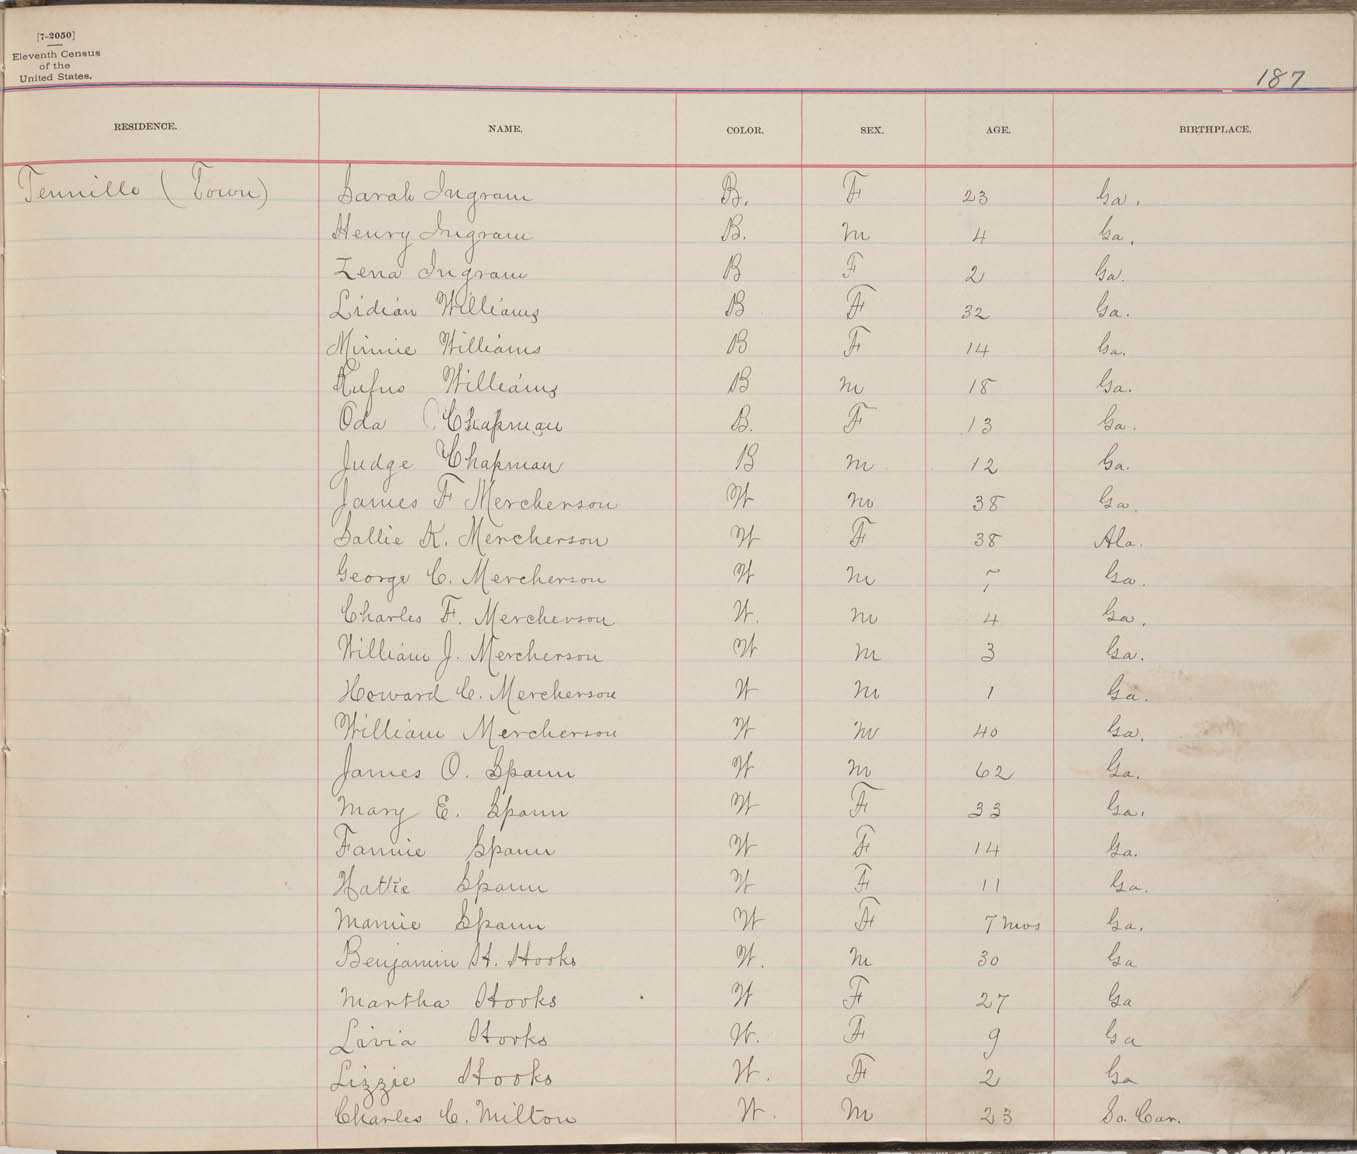 [7-2050]
Eleventh Census
of the
United States.
187
RESIDENCE. NAME. COLOR. SEX. AGE. BIRTHPLACE.
Tennille (Town) Sarah Ingram B. F 23 Ga.
Henry Ingram B. M 4 Ga.
Zena Ingram B F 2 Ga.
Lidian Williams B F 32 Ga.
Minnie Williams B F 14 Ga.
Rufus Williams B M 18 Ga.
Oda Chapman B. F 13 Ga.
Judge Chapman B M 12 Ga.
James F Mercherson W M 38 Ga.
Sallie K. Mercherson W F 38 Ala.
George C. Mercherson W M 7 Ga.
Charles F. Mercherson W. M 4 Ga.
William J. Mercherson W M 3 Ga.
Howard C. Mercherson W M 1 Ga.
William Mercherson W M 40 Ga.
James O. Spann W M 62 Ga.
Mary E. Spann W F 33 Ga.
Fannie Spann W F 14 Ga.
Hattie Spann W F 11 Ga.
Mamie Spann W F 7 mos Ga.
Benjamin H. Hooks W. M 30 Ga
Martha Hooks W F 27 Ga
Lavia Hooks W. F 9 Ga
Lizzie Hooks W. F 2 Ga
Charles C. Milton W. M 23 So. Car.